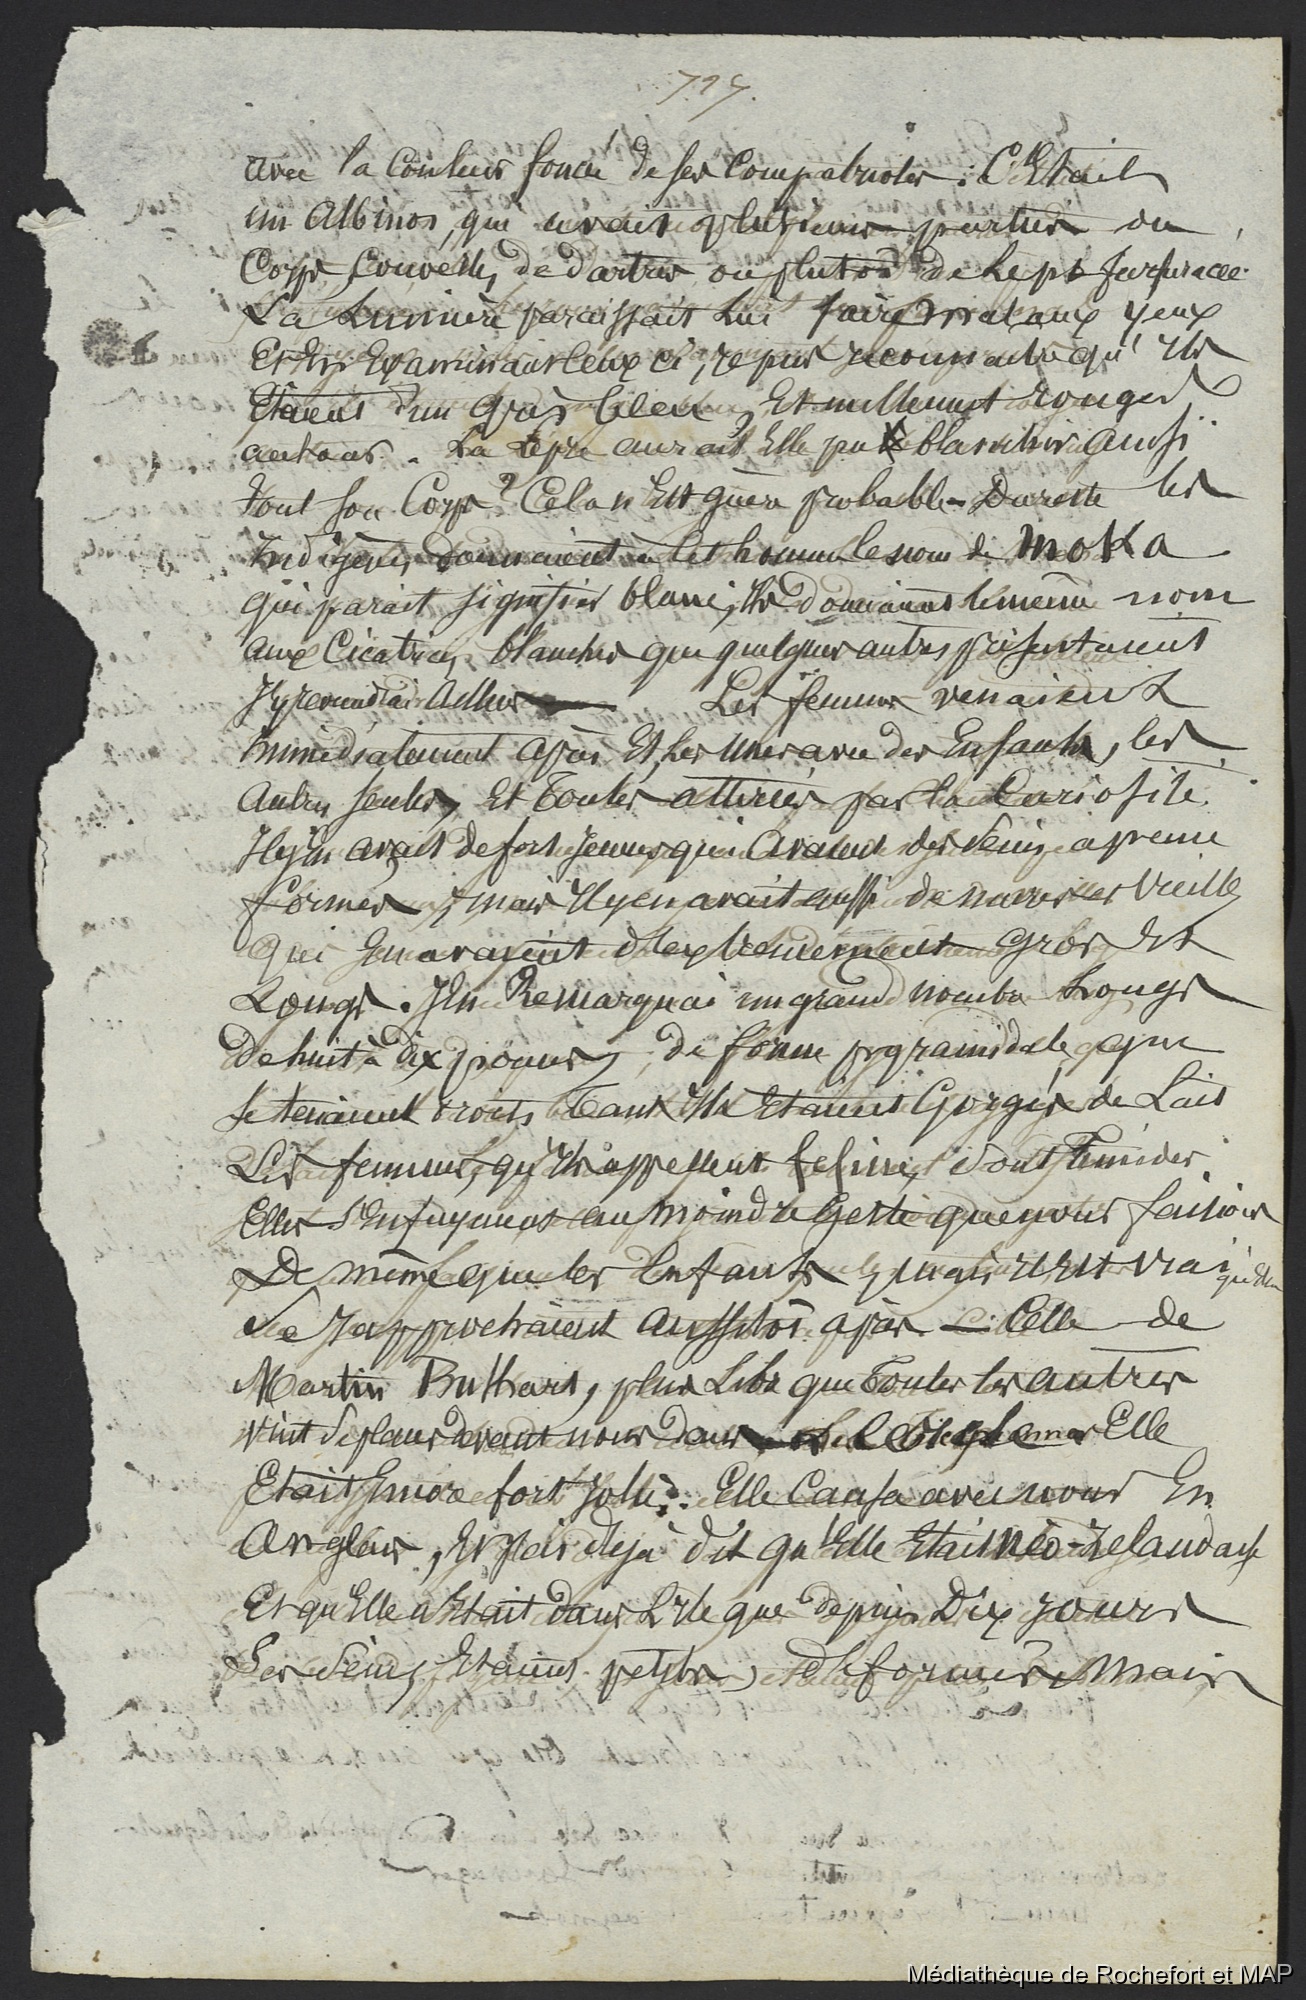 avec la Couleur foncée de ses Compatriotes : C'Etait
un Albinos, qui avait plusieurs parties du
Corps Couvertes de dartres ou plutôt de Lepre furfuracée
La Lumière paraissait Lui faire mal aux yeux
Et En Examinant Ceux ci, je pus reconnaitre qu'Ils
Etaient d'un Gris bleu, Et nullement rouges
autour. La Lepre aurait Elle pu blanchir ainsi
tout son Corps? Cela n'Est guère probable - Du reste les
Indigènes donnaient à Cet homme le nom de moKa
qui parait signifier blanc, Ils donnaient le même nom
aux Cicatrices blanches que quelques autres présentaient
Les femmes venaient
Immédiatement après Et, les Unes avec des Enfants, les
Autres seules, Et toutes attirées par la Curiosité.
Il y En avait de fort jeunes qui avaient des Seins à peine
formés, mais Il y en avait aussi de vieilles
qui En avaient d'extrêmement gros Et
Longs. J'En Remarquai un grand nombre Longs
de huit à dix pouces, de forme pyramidale que
se tenaient droits tant Ils Etaient Gorgés de Lait
Les femmes, qu'Ils appellent fefine, sont timides.
Elles s'Enfuyaient au moindre Geste que nous faisions
De même que les Enfants, mais Il Est vrai qu'Elles
Se rapprochaient aussitôt après. — Celle de
Martin Bukhart, plus Libre que toutes les autres
vint se placer devant nous dans Elle
Etait Encore fort Jolie. Elle Causa avec nous En
Anglais, Et j'ai déjà dit qu'Elle Etait Néo-Zelandaise
Et qu'Elle n'Etait dans L'Ile que depuis Dix jours
Ses Seins Etaient petits, déformés, Mais
Médiathèque de Rochefort et MAP